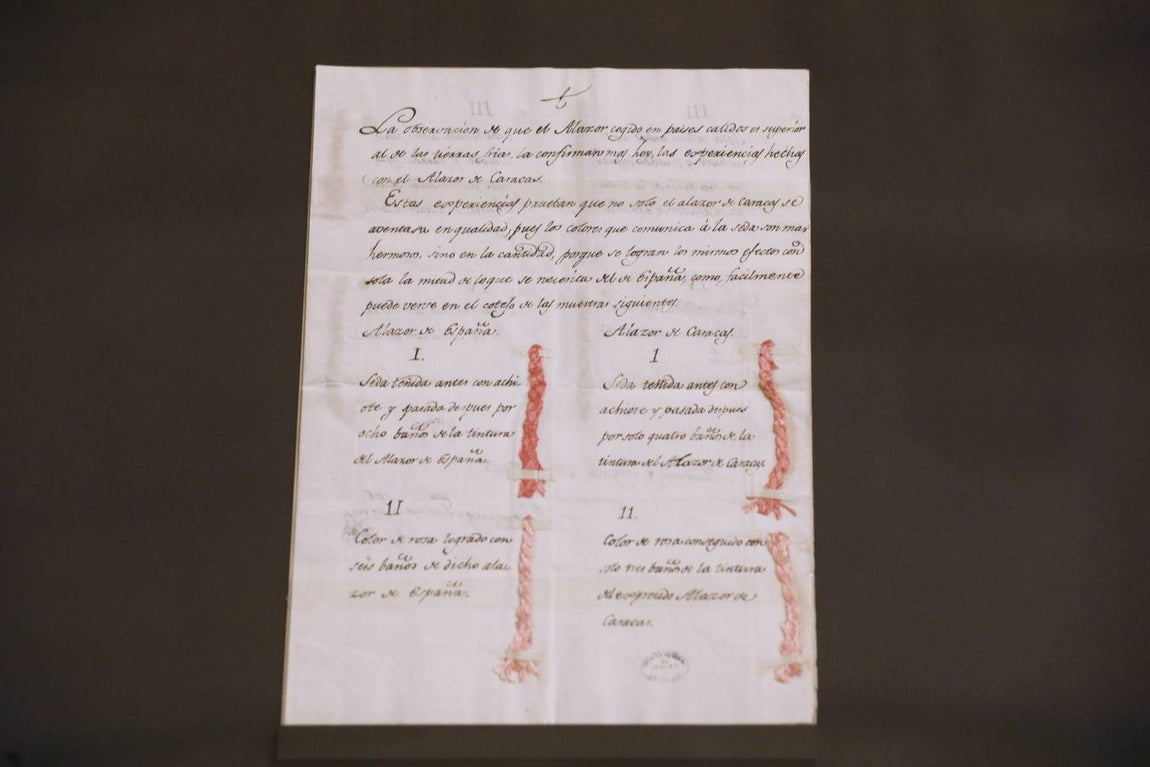 La observacion de que el Alazor cogido en paises calidos es superior
al de las tierras frias, la confirman mas hoy las experiencias hechas
con el Alazor de Caracas.
Estas experiencias prueban que no solo el alazor de Caracas se
aventaja en qualidad, pues los colores que comunica á la seda son mas
hermosos, sino en la cantidad, porque se logran los mismos efectos con
sola la mitad de lo que se necesita del de España, como facilmente
puede verse en el cotejo de las muestras siguientes.
Alazor de España.
I.
Seda teñida antes con achi
ote y pasada despues por
ocho baños de la tintura
del Alazor de España.
II
Color de rosa logrado con
seis baños de dicho ala
zor de España.
Alazor de Caracas.
I
Seda teñida antes con
achiote y pasada despues
por solo quatro baños de la
tintura del Alazor de Caracas.
II.
Color de rosa conseguido con
solo tres baños de la tintura
del expresado Alazor de
Caracas.